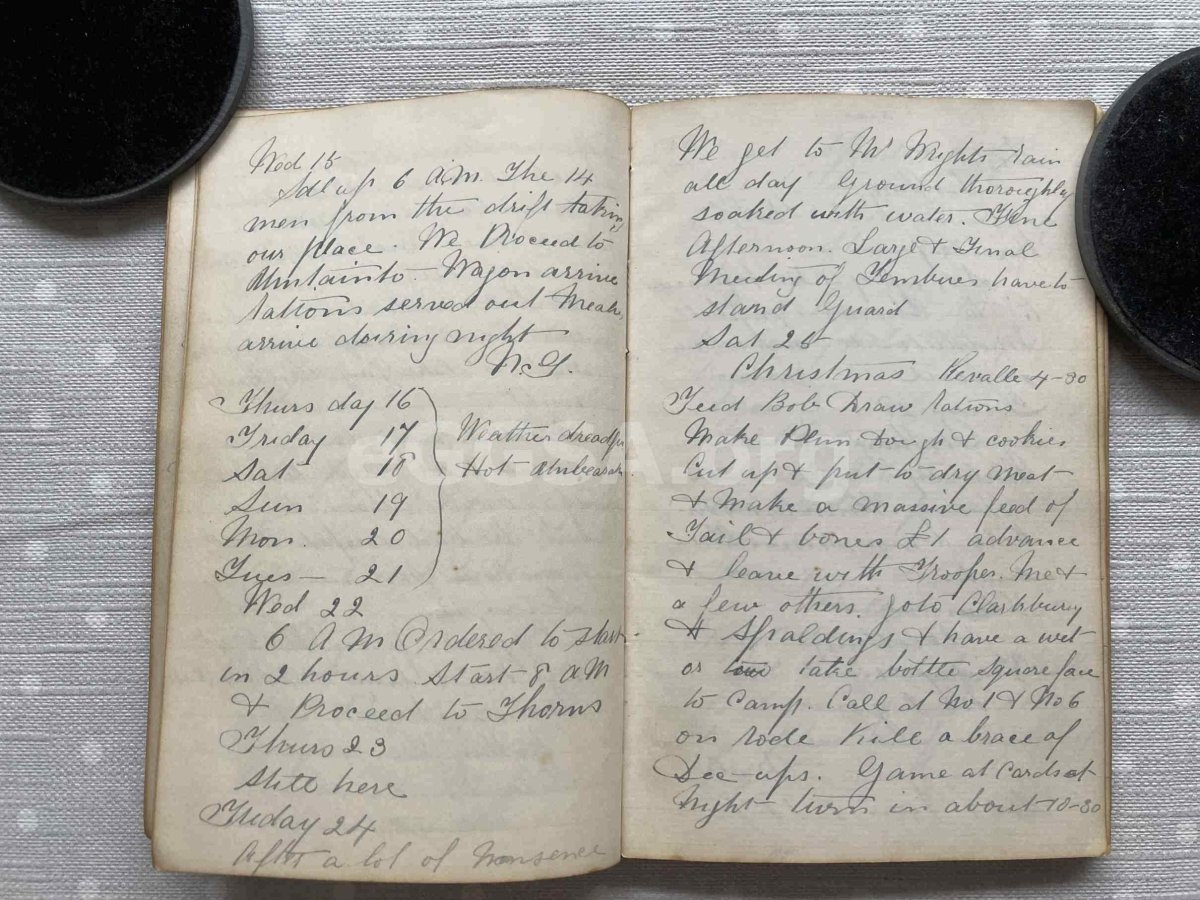 Wed 15
Sdl up 6 A.M. The 14
men from the drift taking
our place. We Proceed to
Umtainto - Wagon arrive
rattons served out Mealies
arrive dairing night
N.G.
Thurs day 16
Friday 17 Weather dreadfu
Sat 18 Hot Unbearab
Sun 19
Mon. 20
Tues - 21
Wed 22
6 A M Ordered to start
in 2 hours Start 8 A M
& Proceed to Thorns
Thurs 23
Still here
Friday 24
After a lot of Nonsence
We get to Mr Wrights rain
all day Ground thoroughly
soaked with water. Fine
Afternoon. Large & Final
Meeting of Tembues have to
stand Guard
Sat 25
Christmas Revalle 4-30
Feed Bob Draw rations
Make Plum Dough & cookies
Cut up & put to dry meat
& Make a massive feed of
Tail & bones £1 advance
& leave with Trooper. Me &
a few others go to Clarkbury
& Spaldings & have a wet
or take bottle square face
to Camp. Call at No 1 & No 6
on rode Kill a brace of
Dee-ups. Game at Cards at
Night turn in about 10-30
eGGSA.org